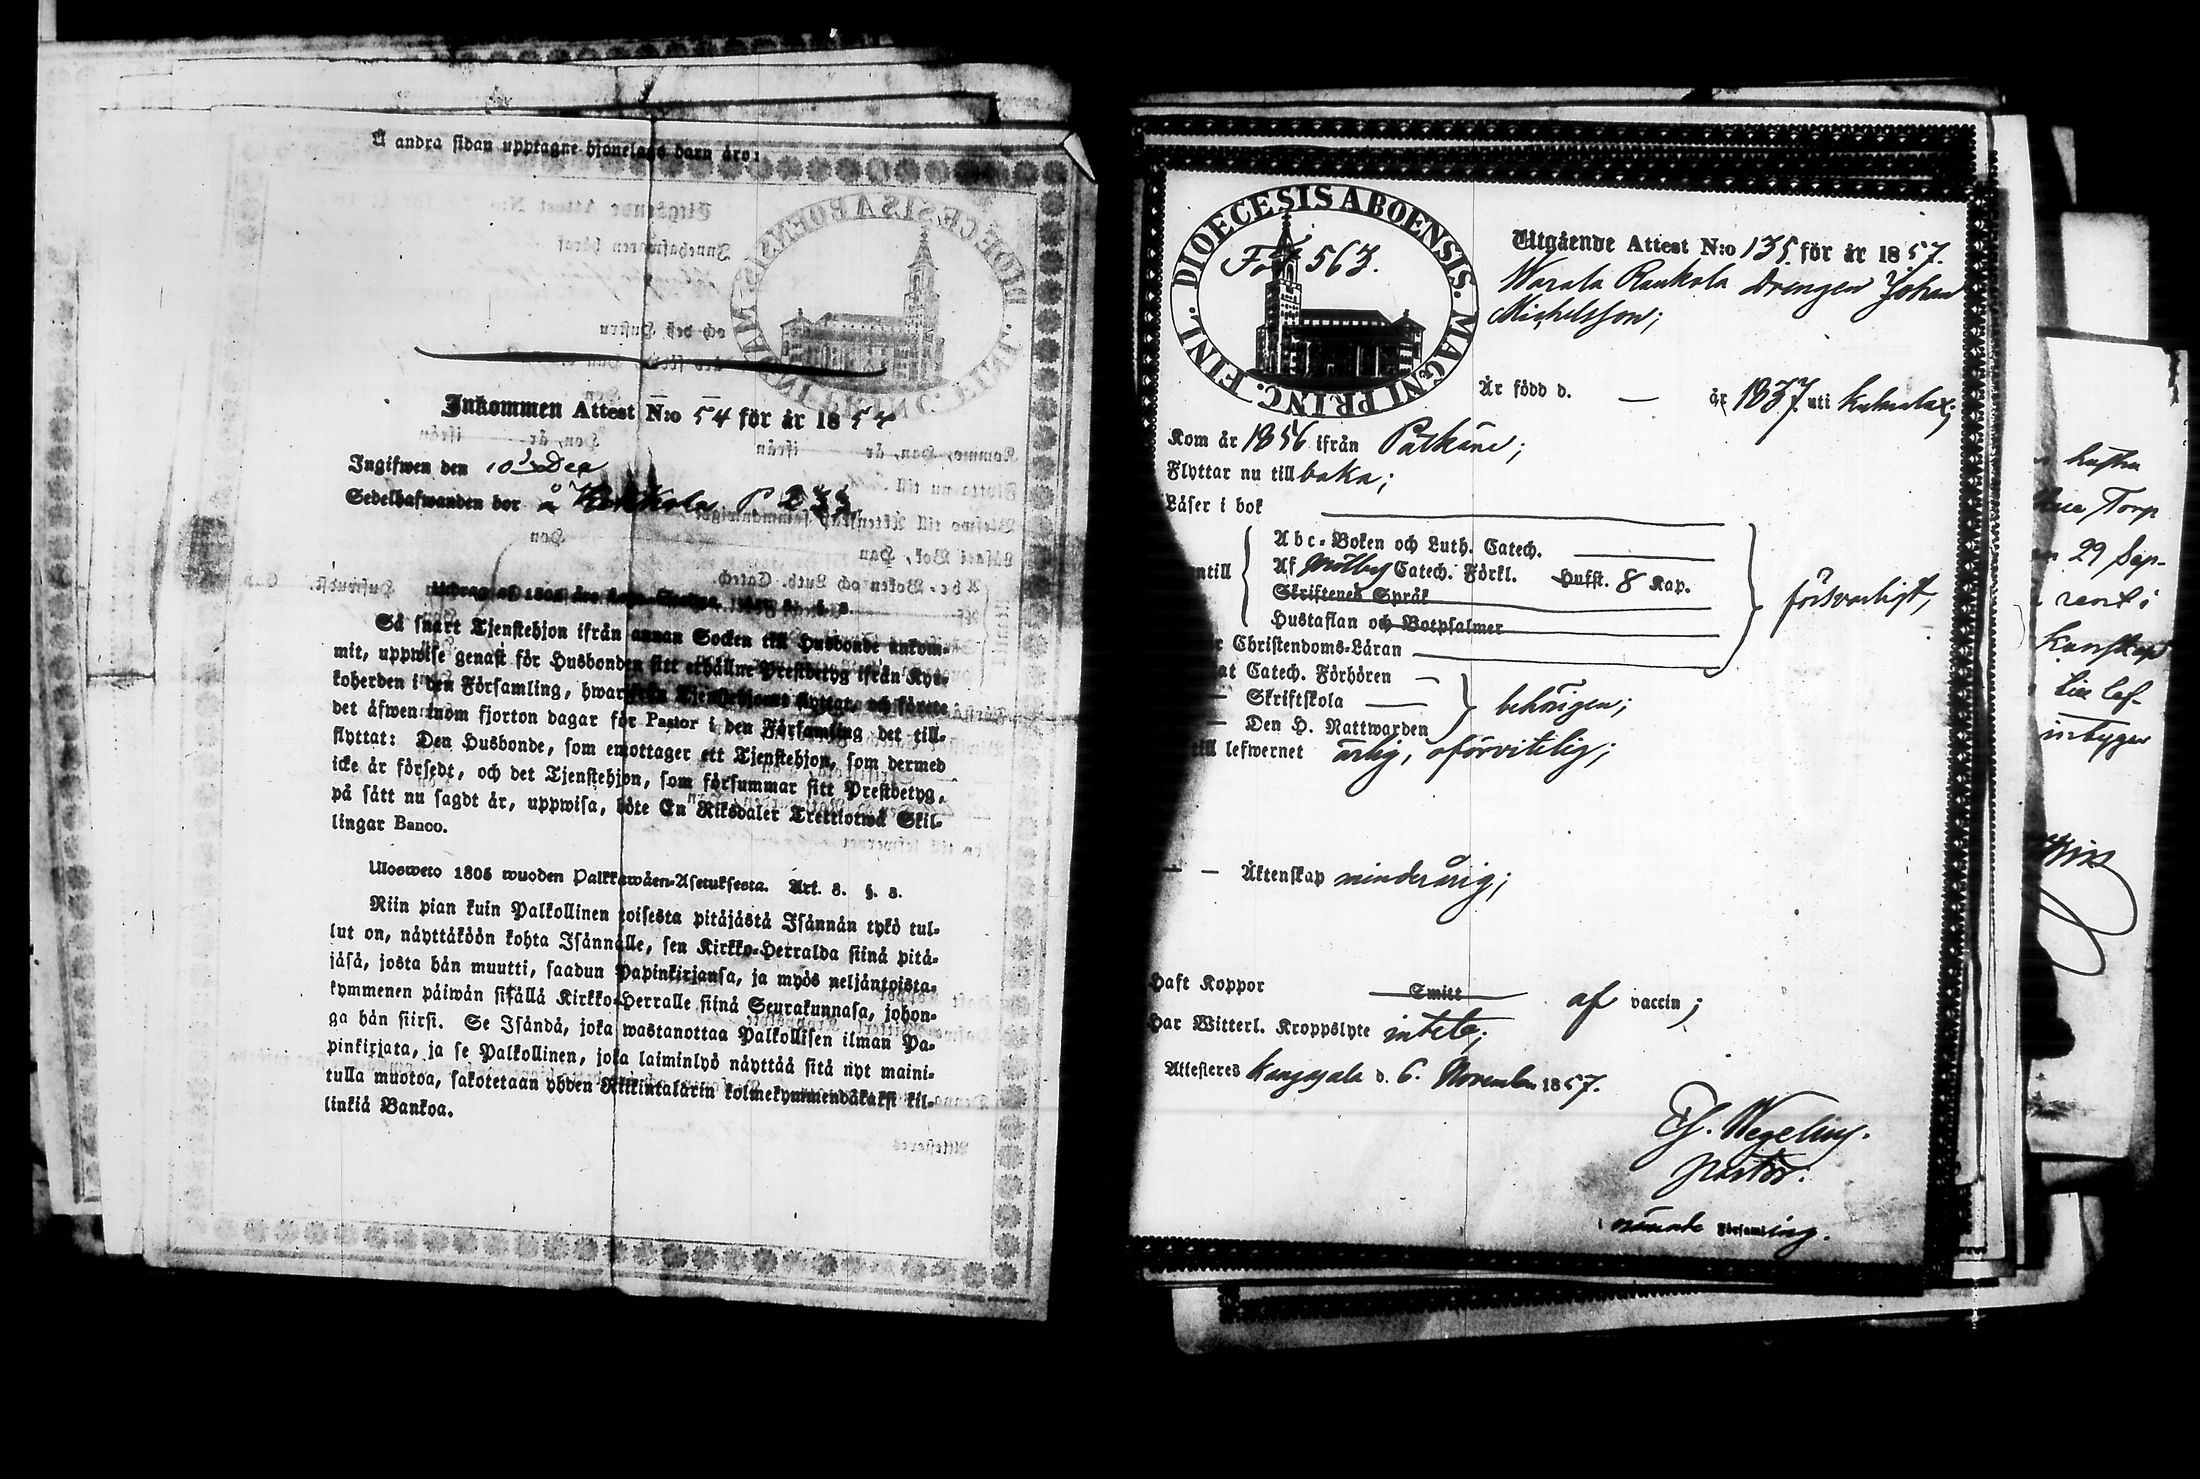 Å andra sidan upptagne hjonelags barn äro:
Inkommen Attest N:o 54 för år 185
Ingifwen den 10 Dec
Sedelhafwanden bor å P 233
Utdrag af 1805 års
Så snart Tjenstehjon ifrån annan Socken till Husbonde ankom-
mit, uppwise genast för Husbonden sitt erhållne Prestbetyg ifrån Kyr-
koherden i den Församling, hwarifrån Tjenstehjonet flyttat, och förete
det äfwen inom fjorton dagar för Pastor i den Församling det till-
flyttat: Den Husbonde, som emottager ett Tjenstehjon, som dermed
icke är försedt, och det Tjenstehjon, som försummar sitt Prestbetyg,
på sätt nu sagdt är, uppwisa, böte En Riksdaler Trettiotwå Skil-
lingar Banco.
Ulosweto 1805 wuoden Palkkawäen-Asetuksesta. Art. 8. §. 3.
Niin pian kuin Palkollinen toisesta pitäjästä Isännän tykö tul-
lut on, näyttäköön kohta Isännälle, sen Kirkko-Herralda siinä pitä-
jäsä, josta hän muutti, saadun Papinkirjansa, ja myös neljäntoista-
kymmenen päiwän sisällä Kirkko-Herralle siinä Seurakunnasa, johon-
ga hän siirsi. Se Isändä, joka wastanottaa Palkollisen ilman Pa-
pinkirjata, ja se Palkollinen, joka laiminlyö näyttää sitä nyt maini-
tulla muotoa, sakotetaan yhden Riikintalarin kolmekymmendäkaksi kil-
linkiä Bankoa.
DIOECESIS ABOENSIS. MAGNI PRINC. FINL.
Fol 563.
Utgående Attest N:o 135 för år 1857.
Warala Raukola Drengen Johan
Michelsson;
Är född d. — år 1837 uti Kuhmalax;
Kom år 1856 ifrån Pälkäne;
Flyttar nu till baka;
Läser i bok
ntill
Abc-Boken och Luth. Catech.
Af Möllby Catech. Förkl. Husst. 8 Kap.
Skriftenes Språk
Hustaflan och Botpsalmer
försvarligt,
r Christendoms-Läran
at Catech. Förhören
— Skriftskola
— Den H. Nattwarden
behörigen;
till lefwernet ärlig, oförvitelig;
— — Äktenskap minderårig;
Haft Koppor Smitt af vaccin;
Har Witterl. Kroppslyte intet;
Attesteres Kangasala d. 6. November 1857.
Th. Wegelius.
pastor.
i nämnde Församling.
Torp
29 Sep-
lef-
intygar